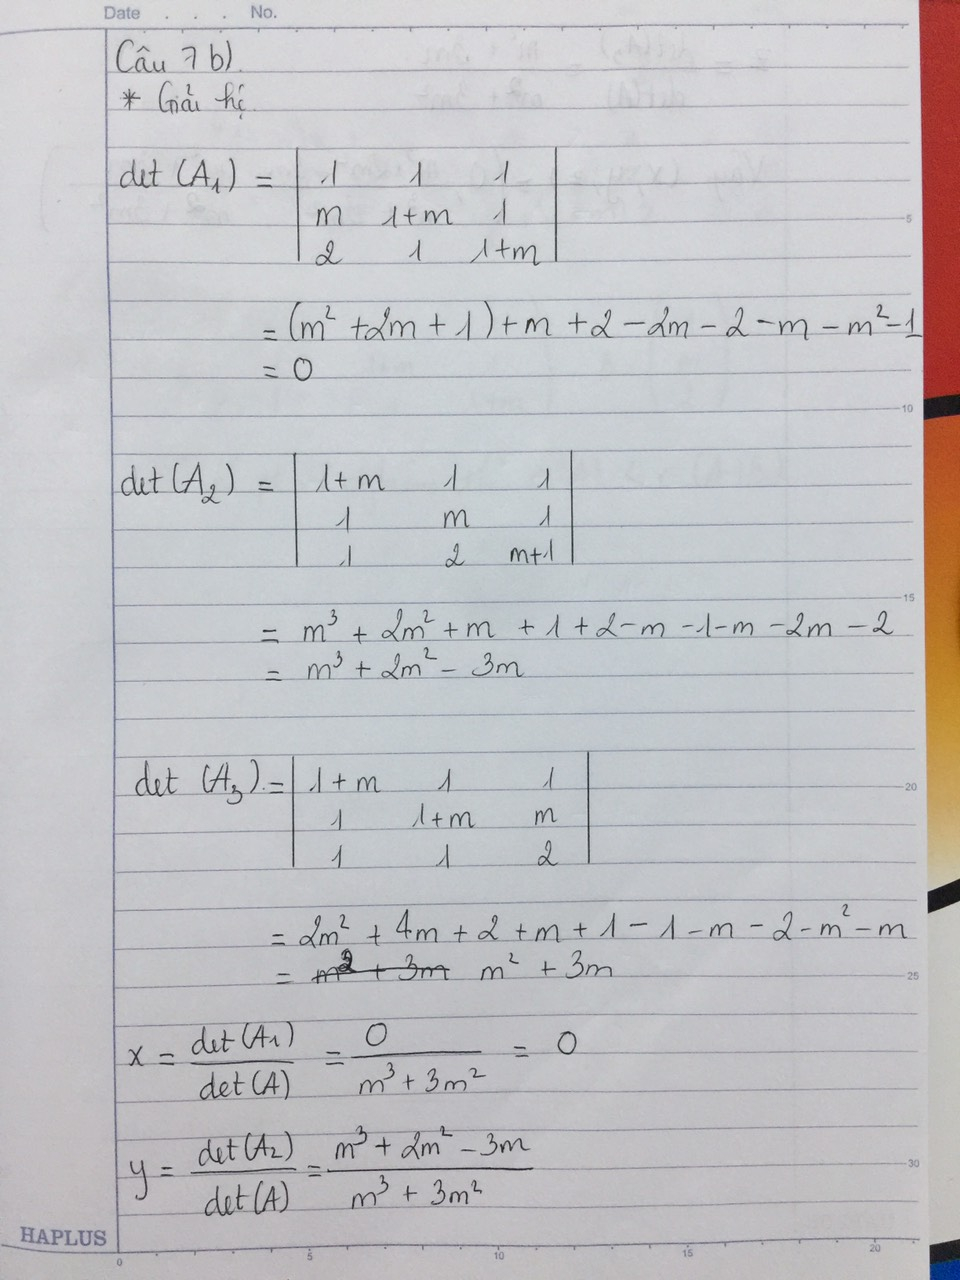 Date . . . No.
Câu 7 b)
* Giải hệ
det (A₁) = | 1 1 1 |
| m 1+m 1 |
| 2 1 1+m |
= (m² + 2m + 1) + m + 2 - 2m - 2 - m - m² - 1
= 0
det (A₂) = | 1+m 1 1 |
| 1 m 1 |
| 1 2 m+1 |
= m³ + 2m² + m + 1 + 2 - m - 1 - m - 2m - 2
= m³ + 2m² - 3m
det (A₃) = | 1+m 1 1 |
| 1 1+m m |
| 1 1 2 |
= 2m² + 4m + 2 + m + 1 - 1 - m - 2 - m² - m
= m² + 3m m² + 3m
x = det(A₁) / det(A) = 0 / m³ + 3m² = 0
y = det(A₂) / det(A) = m³ + 2m² - 3m / m³ + 3m²
HAPLUS
5
10
15
20
25
30
0 5 10 15 20